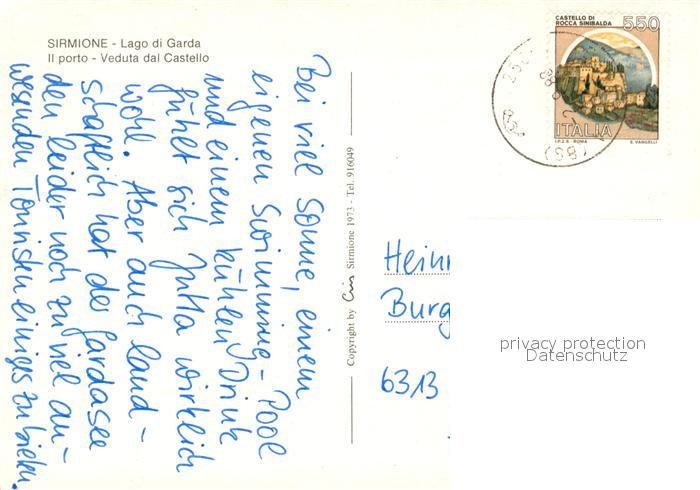 SIRMIONE - Lago di Garda
Il porto - Veduta dal Castello
Bei viel Sonne, einem
eigenen Swimming-Pool
und einem kühlen Drink
fühlt sich Jutta wirklich
wohl. Aber auch land-
schaftlich hat der Gardasee
den leider noch zu viel an-
wesenden Touristen einiges zu bieten.
Copyright by Sirmione 1973 - Tel. 916049
CASTELLO DI
ROCCA SINIBALDA
550
ITALIA
I.P.Z.S. - ROMA E. VANGELLI
(BS)
Heinr
Burg
6313
privacy protection
Datenschutz